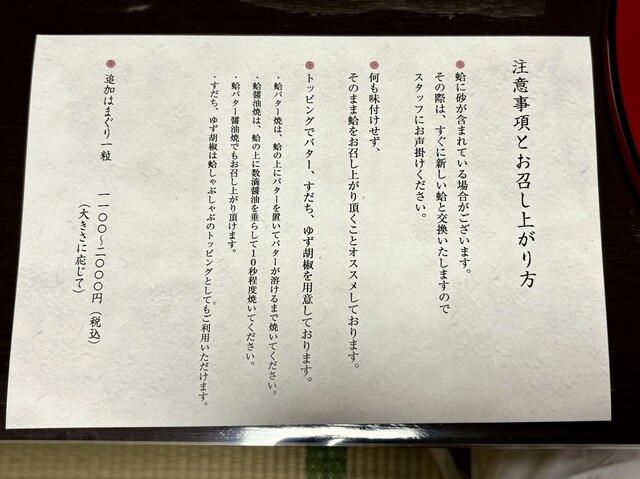 注意事項とお召し上がり方
蛤に砂が含まれている場合がございます。
その際は、すぐに新しい蛤と交換いたしますので
スタッフにお声掛けください。
何も味付けせず、
そのまま蛤をお召し上がり頂くことオススメしております。
トッピングでバター、すだち、ゆず胡椒を用意しております。
・蛤バター焼は、蛤の上にバターを置いてバターが溶けるまで焼いてください。
・蛤醤油焼は、蛤の上に数滴醤油を垂らして10秒程度焼いてください。
・蛤バター醤油焼でもお召し上がり頂けます。
・すだち、ゆず胡椒は蛤しゃぶしゃぶのトッピングとしてもご利用いただけます。
追加はまぐり一粒　一一〇〇〜二〇〇〇円（税込）
（大きさに応じて）